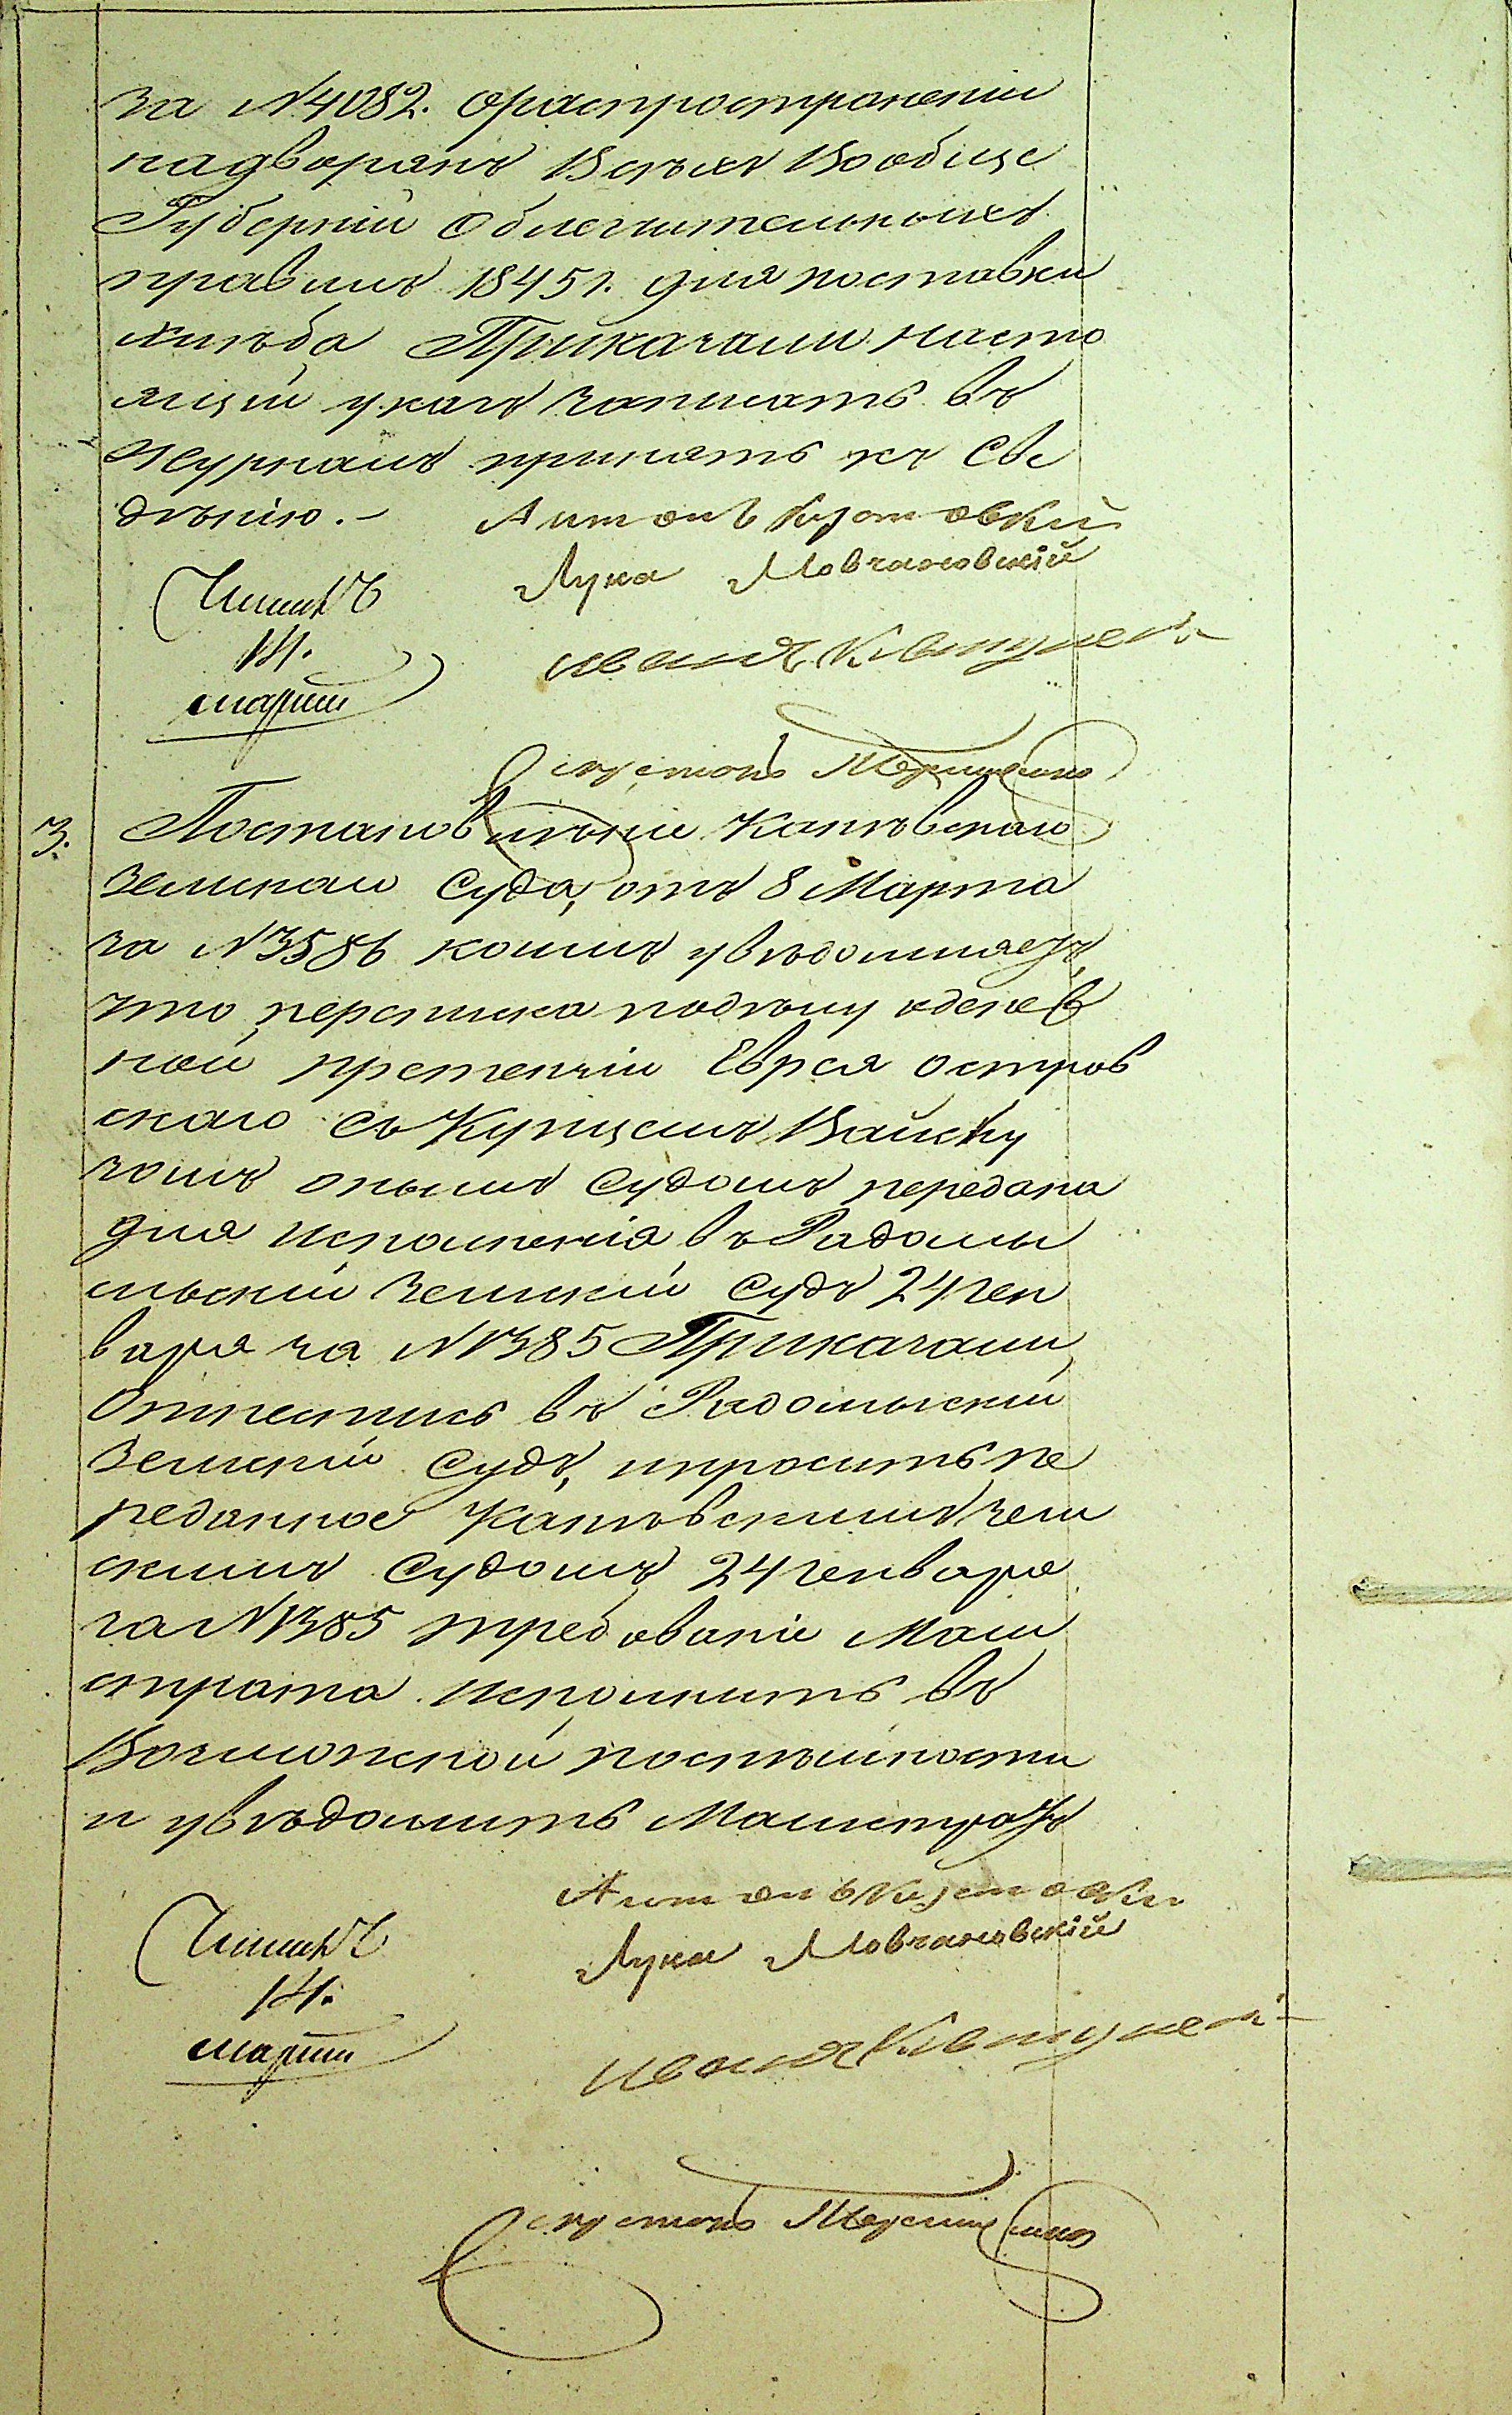 за N 4082. ораспространеніи
надворянъ Всѣхъ Вообще
Губерній облегчительныхъ
правилъ 1845 г. для поставки
хлѣба Приказали насто
ящій указъ записать въ
журналъ принять къ Све
дѣнію. –
Антонъ
Лука Мовчановскій
14.
марта
Иванъ
3. Постановленіе Каневскаго
земскаго Суда, отъ 8 Марта
за N 3586 коимъ увѣдомляетъ,
что переписка подѣлу оденеж
ной претензіи Еврея Остров
скаго съ Купцемъ Вайсбу
гомъ онымъ Судомъ передана
для исполненія въ Радомы
сльскій земскій Судъ 24 ген
варя за N 1385 Приказали
Отнестись въ Радомыскій
земскій Судъ, и просить пе
реданное Каневскимъ зем
скимъ Судомъ 24 генваря
за N 1385 требованіе Маги
страта исполнить въ
Возможной поспѣшности
и увѣдомить Магистратъ
Антонъ
Лука Мовчановскій
14.
марта
Иванъ